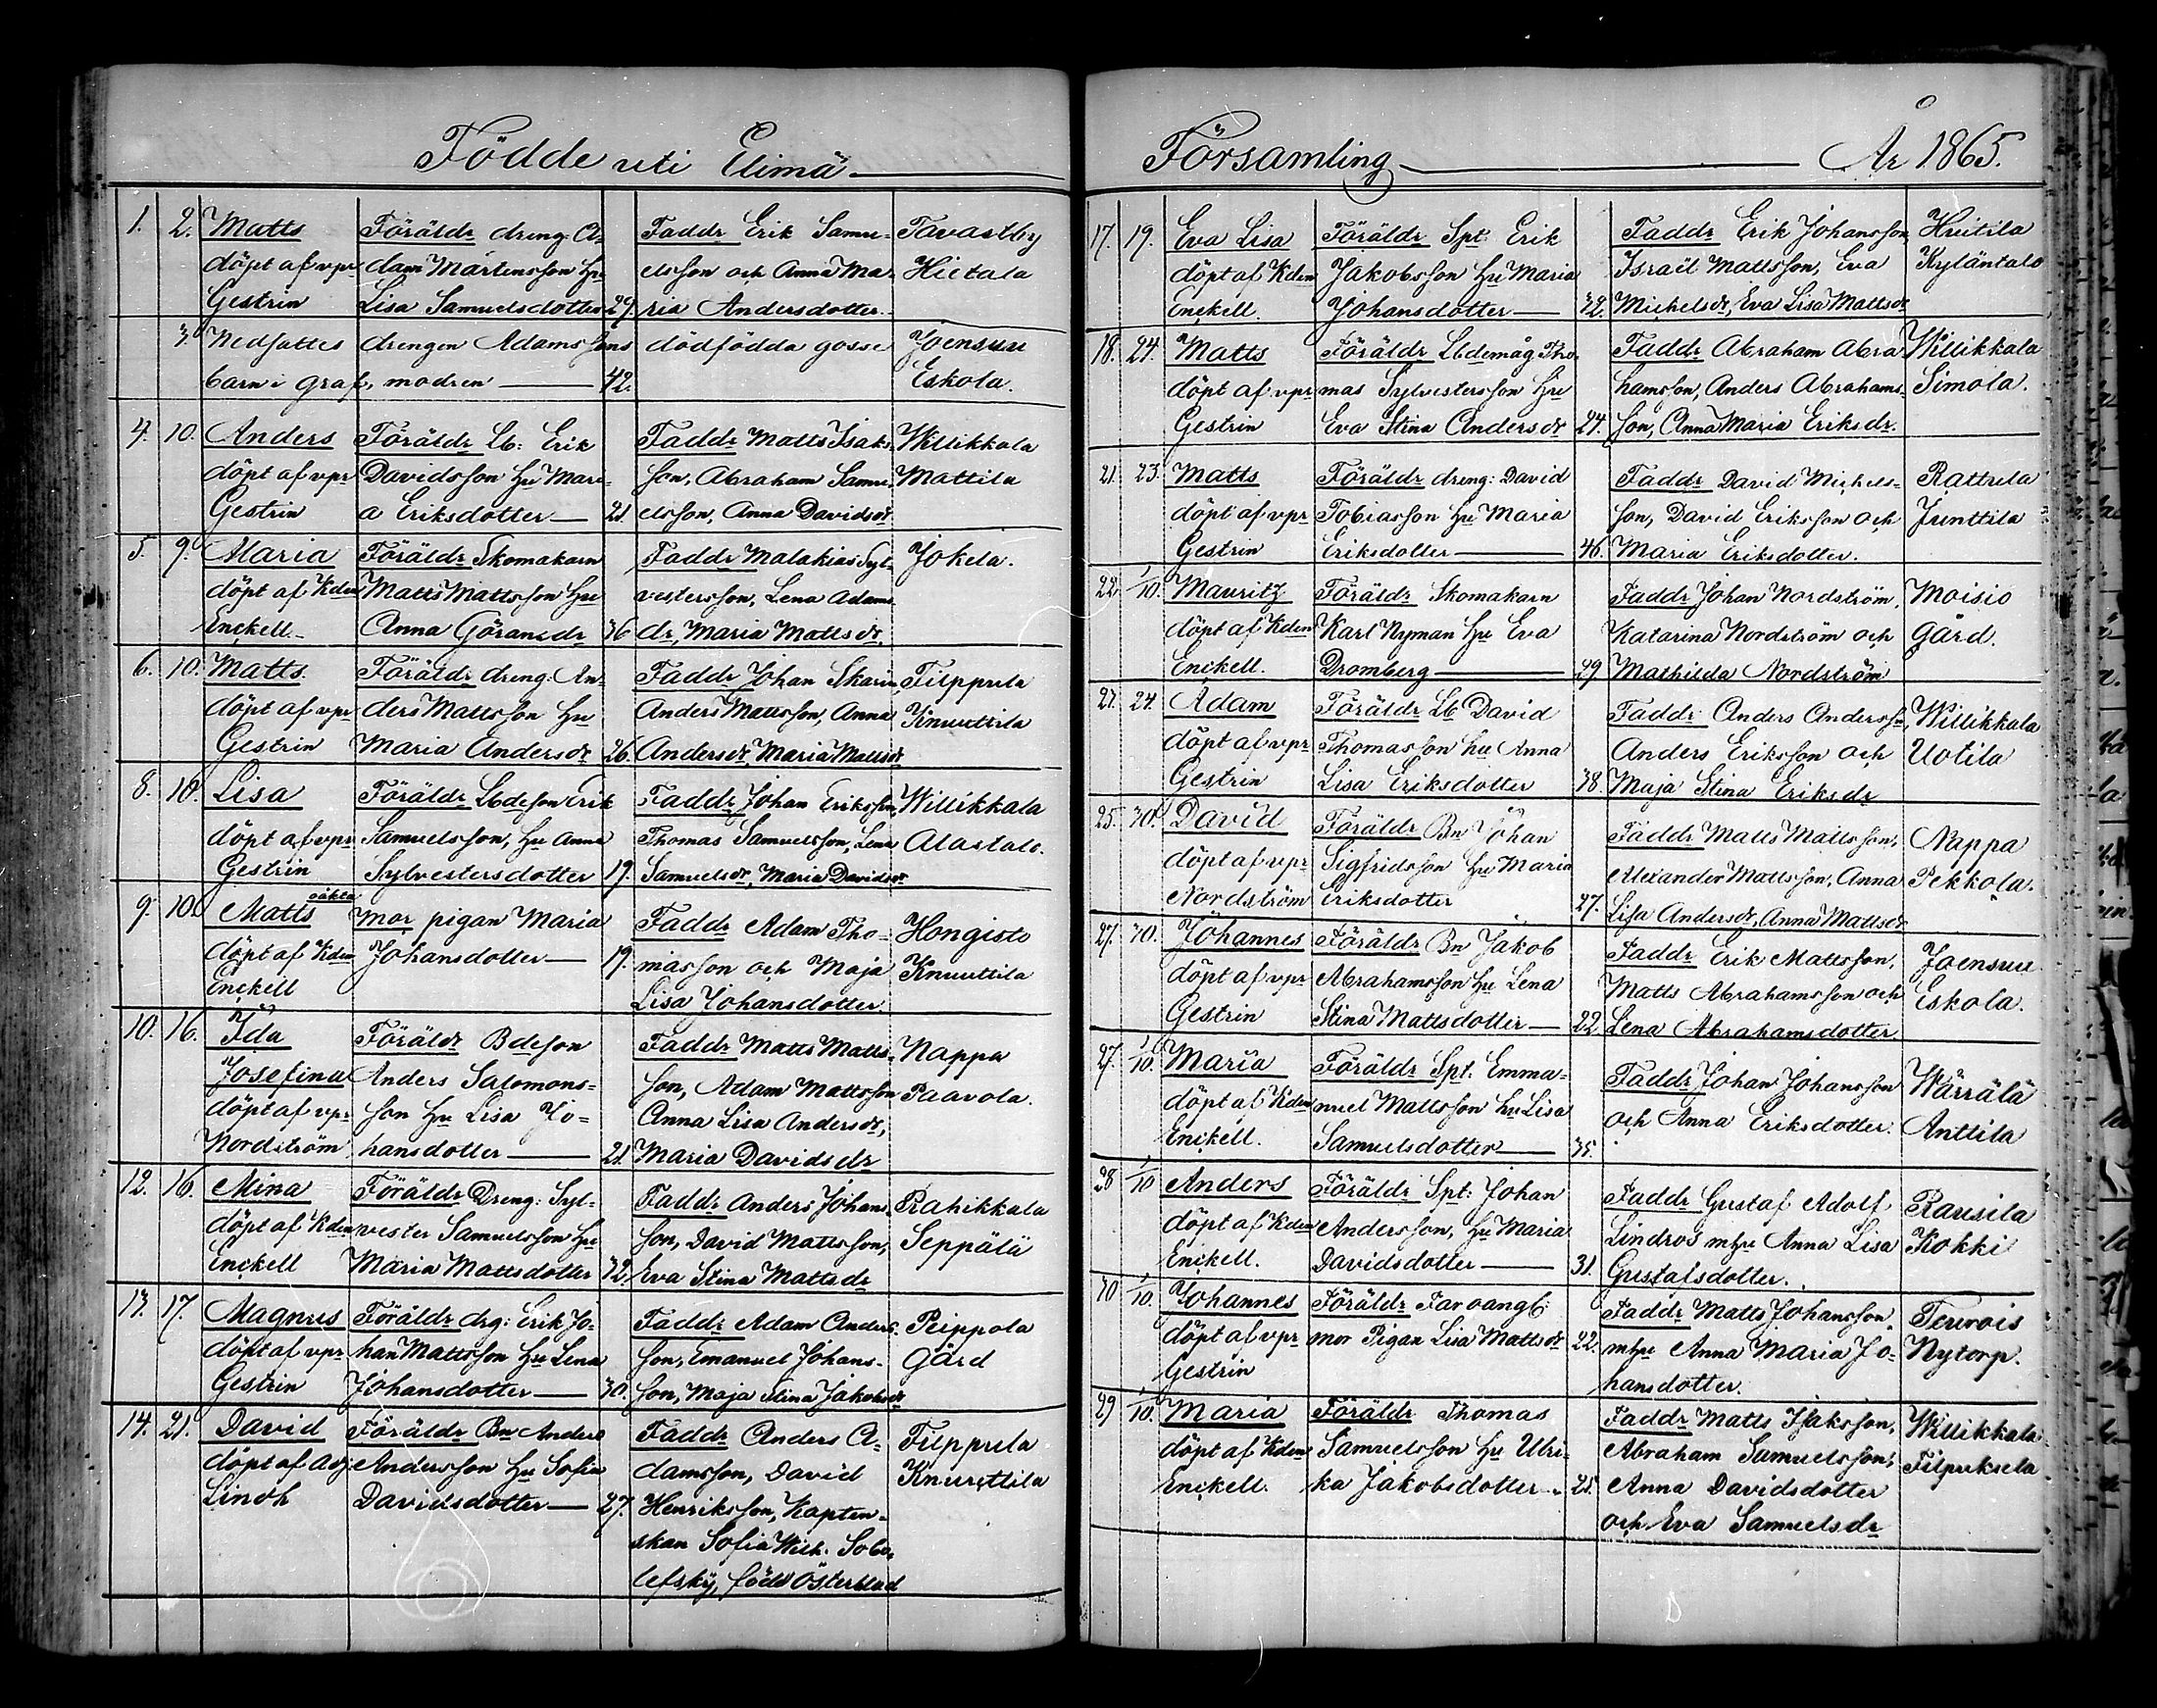 Födde uti Elimä
1. 2. Matts Föräldr dreng: A- Faddr Erik Samu- Tavastby
döpt af vpr dam Mårtensson Hu elsson och Anna Ma- Hietala
Gestrin Lisa Samuelsdotter 29. ria Andersdotter.
3. Nedsattes drengen Adamssons dödfödda gosse Joensuu
barn i graf, modren 42. Eskola.
4. 10. Anders Föräldr Lb: Erik Faddr Matts Isaks- Willikkala
döpt af vpr Davidsson Hu Mari- son, Abraham Samu- Mattila
Gestrin a Eriksdotter 21. elsson, Anna Davidsdr
5. 9. Maria Föräldr Skomakarn Faddr Malakias Syl- Jokela.
döpt af Kden Matts Mattsson Hu vestersson, Lena Adams
Enckell. Anna Göransdr 36 dr, Maria Mattsdr.
6. 10. Matts Föräldr dreng: An- Faddr Johan Skarin, Filppula
döpt af vpr ders Mattsson Hu Anders Mattsson, Anna Knuuttila
Gestrin Maria Andersdr 26. Andersdr, Maria Mattsdr
8. 10. Lisa Föräldr Lbdeson Erik Faddr Johan Eriksson, Willikkala
döpt af vpr Samuelsson, Hu Anna Thomas Samuelsson, Lena Alastalo.
Gestrin Sylvestersdotter 19. Samuelsdr, Maria Davidsdr
oäkta
9. 10. Matts mor pigan Maria Faddr Adam Tho- Hongisto
döpt af Kden Johansdotter 19. masson och Maja Knuuttila
Enckell Lisa Johansdotter.
10. 16. Ida Föräldr Bdeson Faddr Matts Matts- Nappa
Josefina Anders Salomons- son, Adam Mattsson Paavola.
döpt af vpr son Hu Lisa Jo- Anna Lisa Andersdr,
Nordström hansdotter 21. Maria Davidsdr
12. 16. Mina Föräldr Dreng: Syl- Faddr Anders Johans- Rahikkala
döpt af Kden vester Samuelsson Hu son, David Mattsson, Seppälä
Enckell Maria Mattsdotter 32. Eva Stina Mattsdr
13. 17. Magnus Föräldr drg: Erik Jo- Faddr Adam Anders- Peippola
döpt af vpr han Mattsson Hu Lena son, Emanuel Johans- Gård
Gestrin Johansdotter 30. son, Maja Stina Jakobsdr
14. 21. David Föräldr Bn Anders Faddr Anders A- Filppula
döpt af Adj: Andersson Hu Sofia damsson, David Knuuttila
Lindh Davidsdotter 27. Henriksson, Kapten-
skan Sofia Wilh. Sobo-
lefsky, född Österblad
Församling År 1865.
17. 19. Eva Lisa Föräldr Spt: Erik Faddr Erik Johansson, Huitila
döpt af Kden Jakobsson Hu Maria Israël Mattsson, Eva Kyläntalo
Enckell. Johansdotter 32. Michelsdr, Eva Lisa Mattsdr
18. 24. Matts Föräldr Lbdemåg Tho- Faddr Abraham Abra Willikkala
döpt af vpr mas Sylvestersson Hu hamsson, Anders Abrahams- Simola.
Gestrin Eva Stina Andersdr 24. son, Anna Maria Eriksdr.
21. 23. Matts Föräldr dreng: David Faddr David Michels- Rattula
döpt af vpr Tobiasson Hu Maria son, David Eriksson och Junttila
Gestrin Eriksdotter 46. Maria Eriksdotter.
22. 1/10. Mauritz Föräldr Skomakarn Faddr Johan Nordström, Moisio
döpt af Kden Karl Nyman Hu Eva Katarina Nordström och Gård.
Enckell. Dromberg 29 Mathilda Nordström
21. 24. Adam Föräldr Lb David Faddr Anders Andersson, Willikkala
döpt af vpr Thomasson hu Anna Anders Eriksson och Uotila
Gestrin Lisa Eriksdotter 38. Maja Stina Eriksdr
25. 30. David Föräldr Bn Johan Faddr Matts Mattsson, Nappa
döpt af vpr Sigfridsson Hu Maria Alexander Mattsson, Anna Pekkola.
Nordström Eriksdotter 27. Lisa Andersdr, Anna Mattsdr
27. 30. Johannes Föräldr Bn Jakob Faddr Erik Mattsson, Joensuu
döpt af vpr Abrahamsson Hu Lena Matts Abrahamsson och Eskola.
Gestrin Stina Mattsdotter 22. Lena Abrahamsdotter.
27. 1/10. Maria Föräldr Spt. Emma- Faddr Johan Johansson Wärrälä
döpt af Kden nuel Mattsson hu Lisa och Anna Eriksdotter. Anttila
Enckell. Samuelsdotter 35.
28 1/10 Anders Föräldr Spt: Johan Faddr Gustaf Adolf Rausila
döpt af Kden Andersson, Hu Maria Lindros mhu Anna Lisa Kokki
Enckell. Davidsdotter 31. Gustafsdotter.
30 1/10. Johannes Föräldr Far oangf: Faddr Matts Johansson, Terwois
döpt af vpr mor Pigan Lisa Mattsdr 22. mhu Anna Maria Jo- Nytorp.
Gestrin hansdotter.
29 1/10. Maria Föräldr Thomas Faddr Matts Isaksson, Willikkala
döpt af Kden Samuelsson Hu Ulri- Abraham Samuelsson,
Enckell. ka Jakobsdotter 25. Anna Davidsdotter
och Eva Samuelsdr